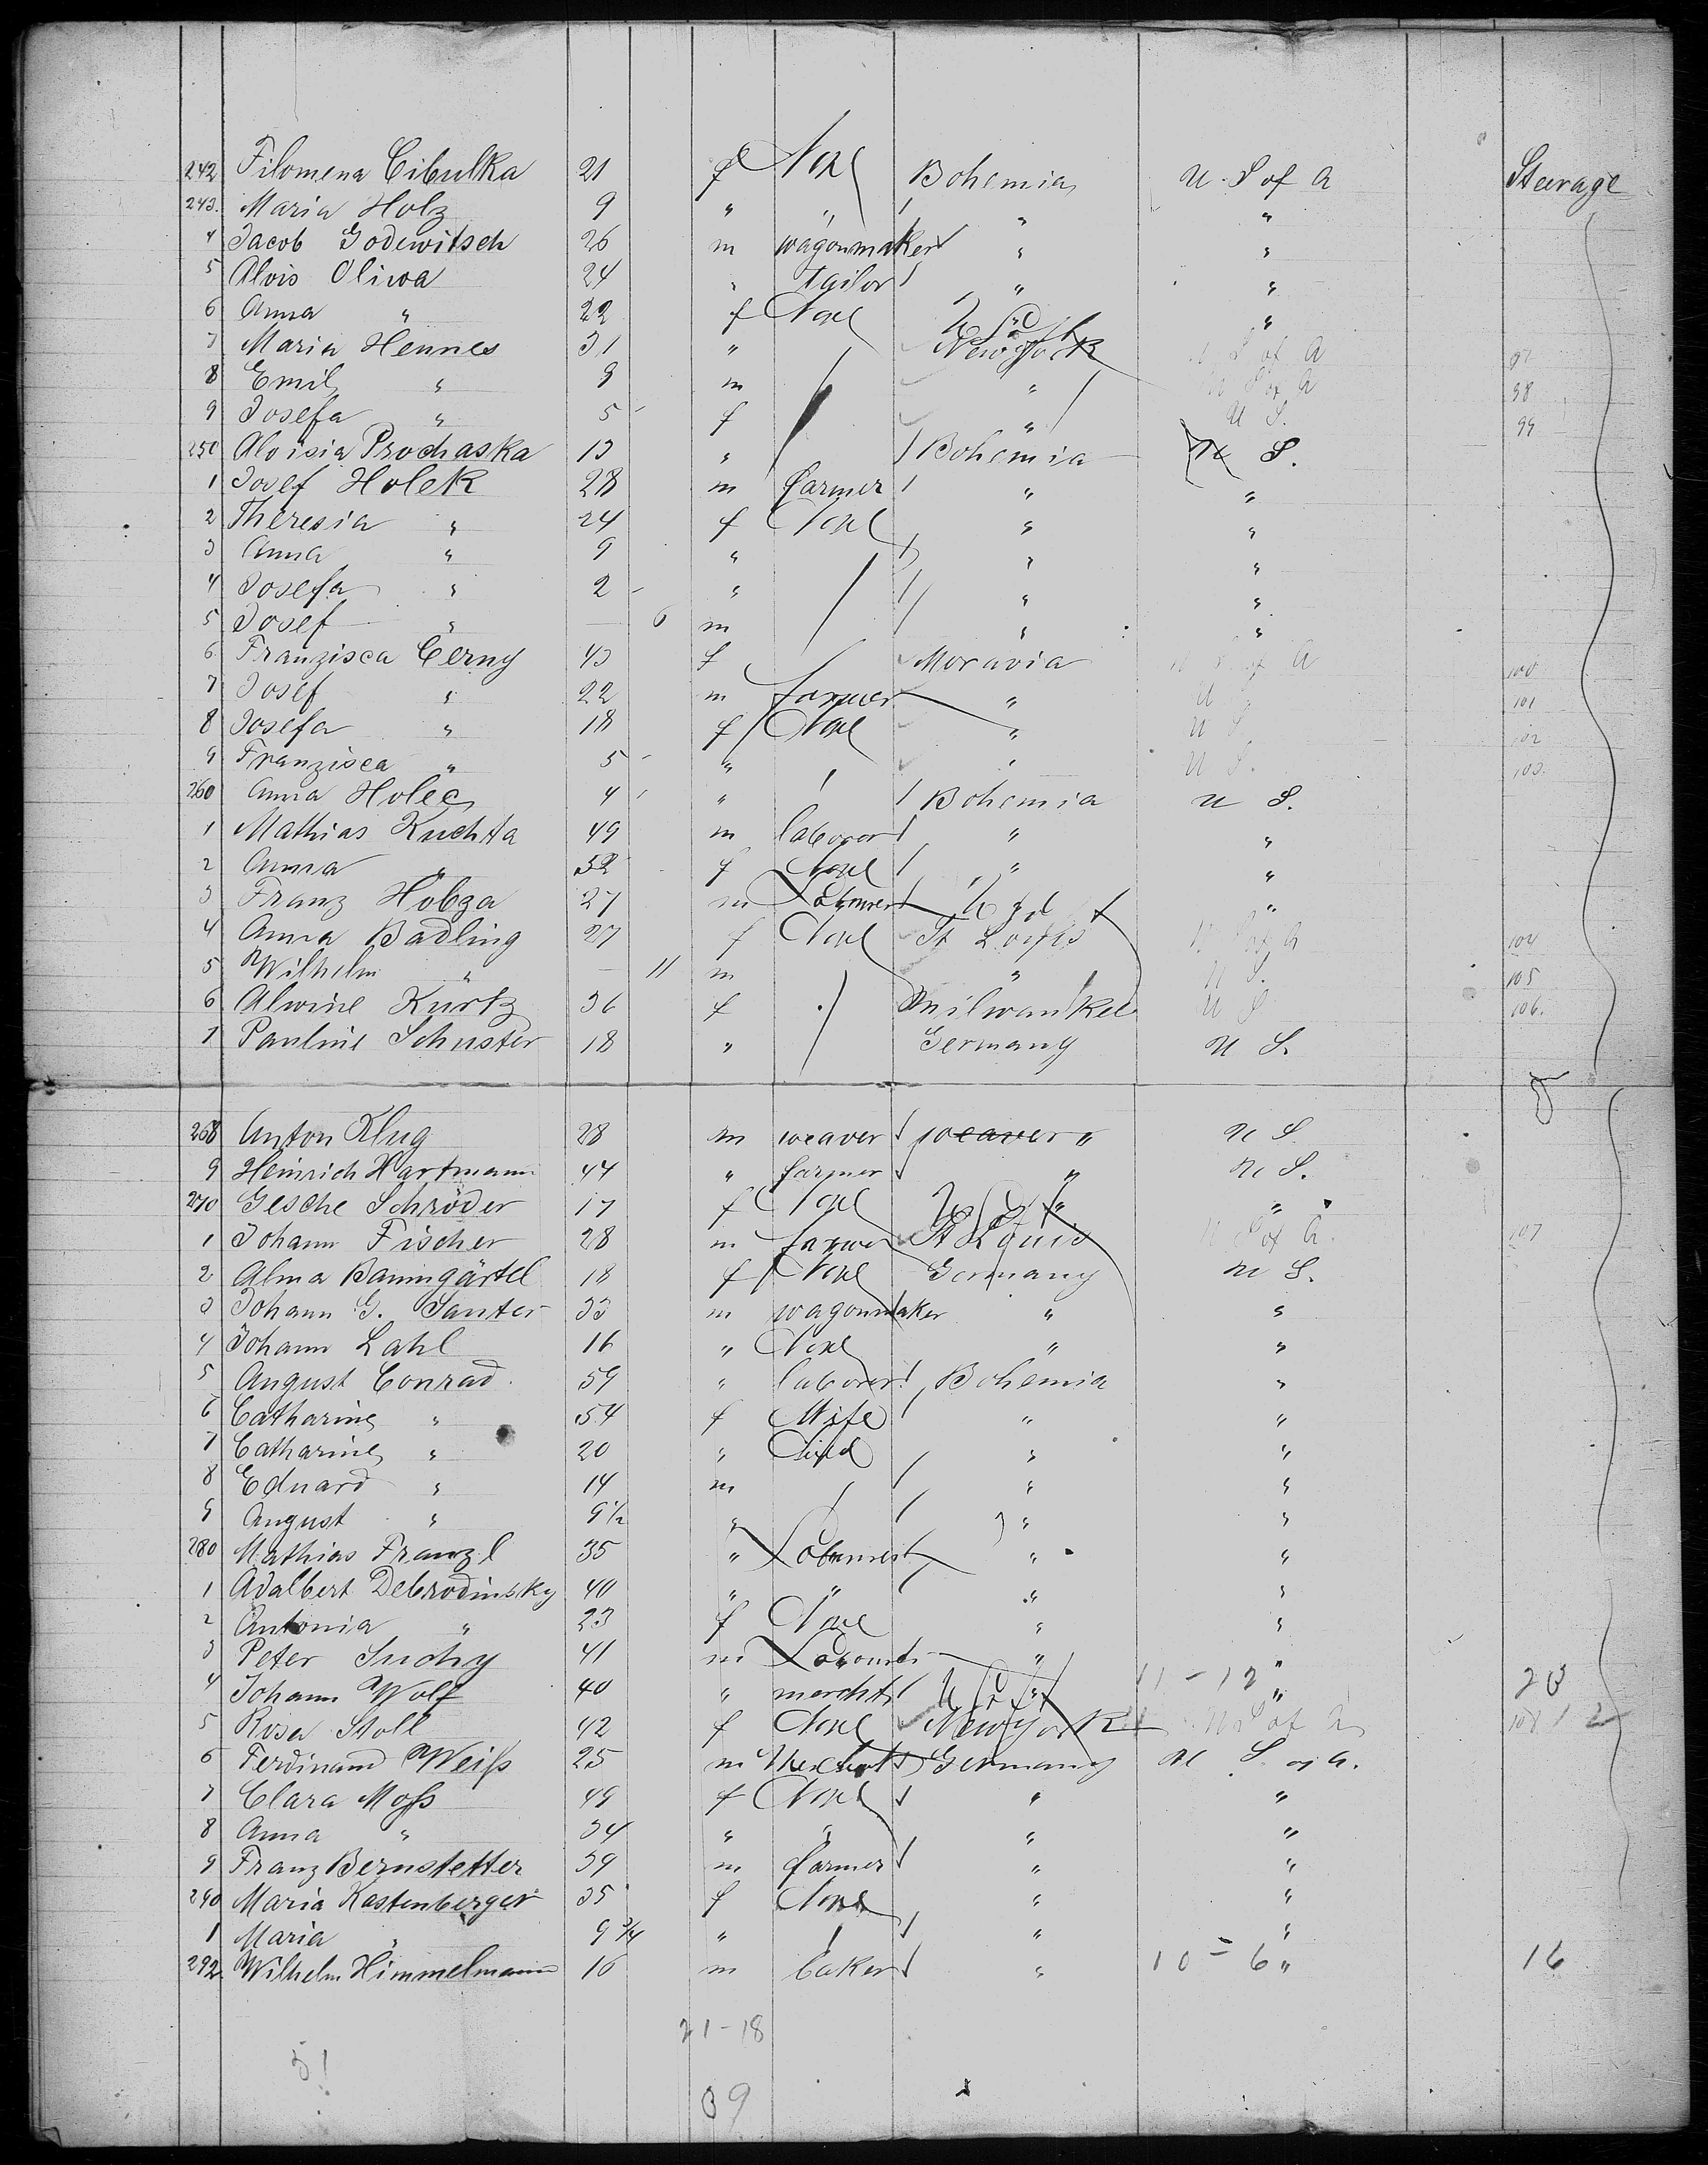 242 Filomena Cibulka 21 f None Bohemia U. S of A Steerage
243. Maria Holz 9 " " " "
4 Jacob Godewitsch 26 m wagonmaker " "
5 Alois Oliwa 24 " tailor " "
6 Anna " 22 f None "
7 Maria Hennes 31 " New York U S of A 97
8 Emil " 9 m " U S of A 98
9 Josefa " 5 f " U S. 99
250 Aloisia Prochaska 13 " Bohemia U S.
1 Josef Holek 28 m farmer " "
2 Theresia " 24 f None " "
3 Anna " 9 " " "
4 Josefa " 2 " " "
5 Josef " — 6 m " "
6 Franzisca Cerny 43 f Moravia A 100
7 Josef " 22 m farmer " U 101
8 Josefa " 18 f None " U S 102
9 Franzisca " 5 " " U S. 103.
260 Anna Holec 4 " Bohemia U S.
1 Mathias Kuchta 49 m laborer " "
2 Anna " 52 f None " "
3 Franz Hobza 27 m "
4 Anna Badling 27 f None St Louis U S of A 104
5 Wilhelm " — 11 m " U S. 105
6 Alwine Kurtz 36 f Milwaukee U S 106.
7 Pauline Schuster 18 " Germany U S.
268 Anton Klug 28 m weaver weaver " U S
9 Heinrich Hartmann 44 " farmer " U S.
270 Gesche Schröder 17 f None " "
1 Johann Fischer 28 m farmer St Louis U S of A. 107
2 Alma Baumgärtel 18 f None Germany U S.
3 Johann G. Santer 33 m wagonmaker " "
4 Johann Lahl 16 " None " "
5 August Conrad 59 " laborer Bohemia "
6 Catharine " 54 f Wife " "
7 Catharine " 20 " Child " "
8 Eduard " 14 m " "
9 August " 9 1/2 " " "
280 Mathias Franzl 35 " " "
1 Adalbert Debrodinsky 40 " " " "
2 Antonia " 23 f None " "
3 Peter Suchy 41 m " "
4 Johann Wolf 40 " mercht " 11 - 12 " 23
5 Rosa Stoll 42 f None New York U S of A 108
6 Ferdinand Weiss 25 m Germany U S of A.
7 Clara Moss 49 f None " "
8 Anna " 34 " " " "
9 Franz Bernstetter 39 m farmer " "
290 Maria Kastenberger 35 f None " "
1 Maria " 9 3/4 " " "
292 Wilhelm Himmelmann 16 m baker " 10 - 6 " 16
21 - 18
51
39